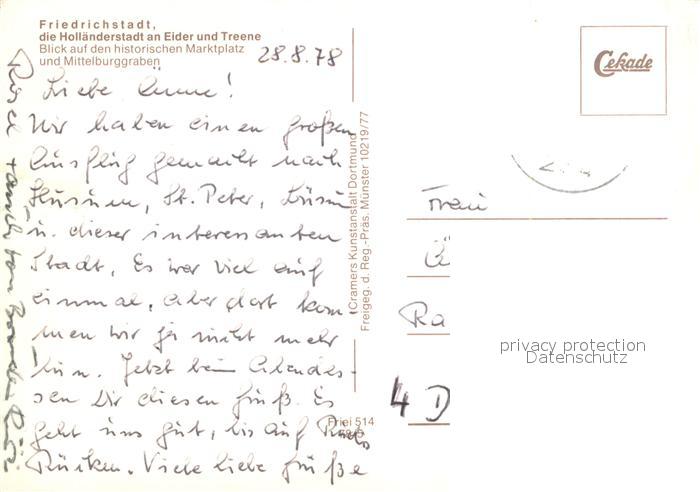 Friedrichstadt,
die Holländerstadt an Eider und Treene
Blick auf den historischen Marktplatz
und Mittelburggraben
28.8.78
Liebe Änne!
Wir haben einen großen
Ausflug gemacht nach
Husum, St. Peter, Büsum
u. dieser interessanten
Stadt. Es war viel auf
einmal, aber dort kom-
men wir ja nicht mehr
hin. Jetzt beim Abendes-
sen Dir diesen Gruß. Es
geht uns gut, bis auf
Rücken. Viele liebe Grüße
auch von
Cramers Kunstanstalt Dortmund
Freigeg. d. Reg.-Präs. Münster 10219/77
Friei 514
Cekade
Frau
Ä
Ra
4 D
privacy protection
Datenschutz